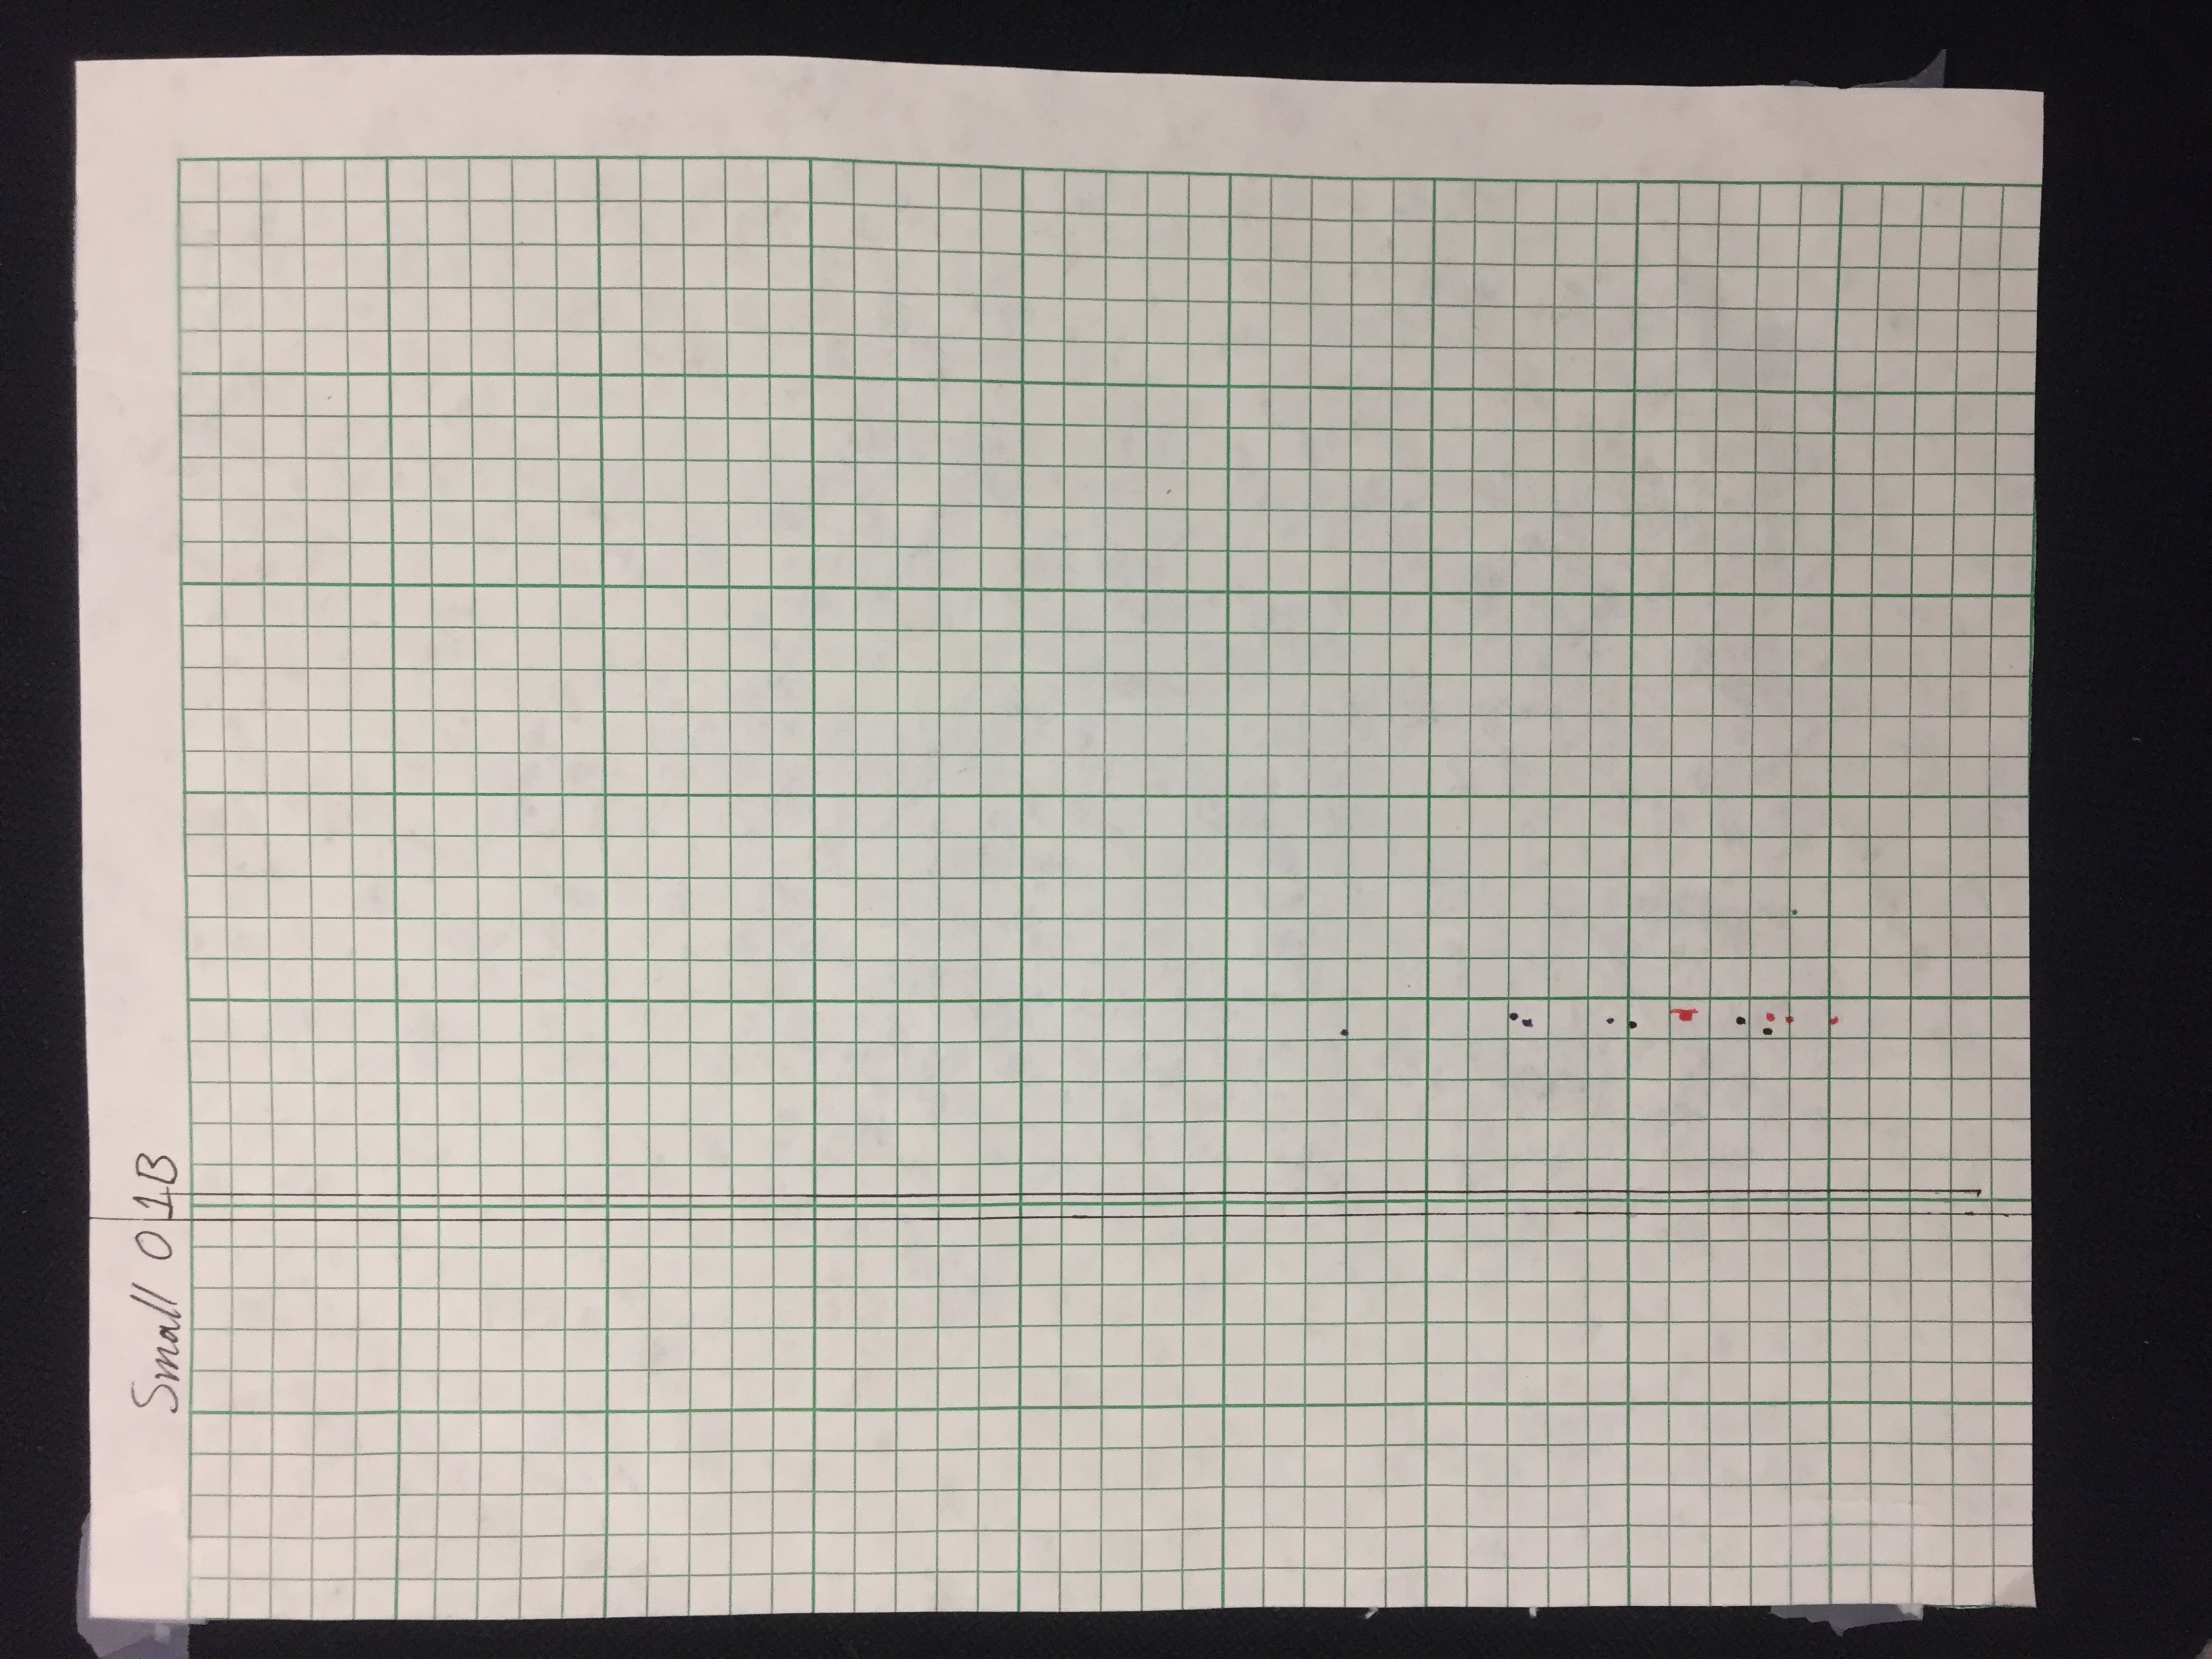 Small 01B